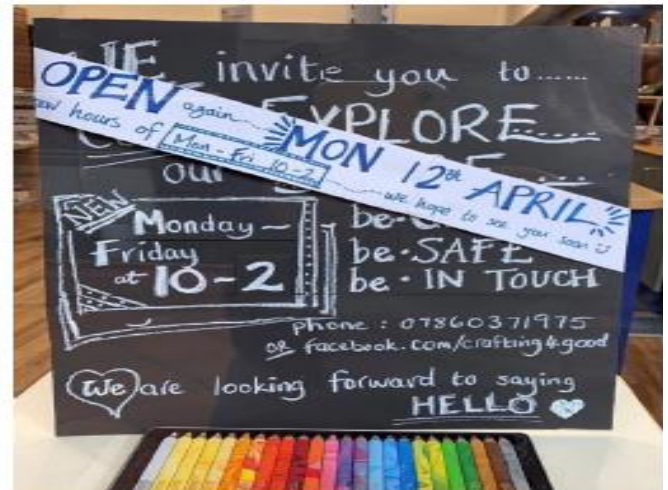 WE invite you to......
OPEN again MON 12th APRIL
hours of Mon - Fri 10-2 we hope to see you soon
EXPLORE....
our
NEW Monday -
Friday
at 10-2
be.
be. SAFE
be. IN TOUCH
phone: 07860371975
OR facebook.com/crafting4good
We are looking forward to saying
HELLO